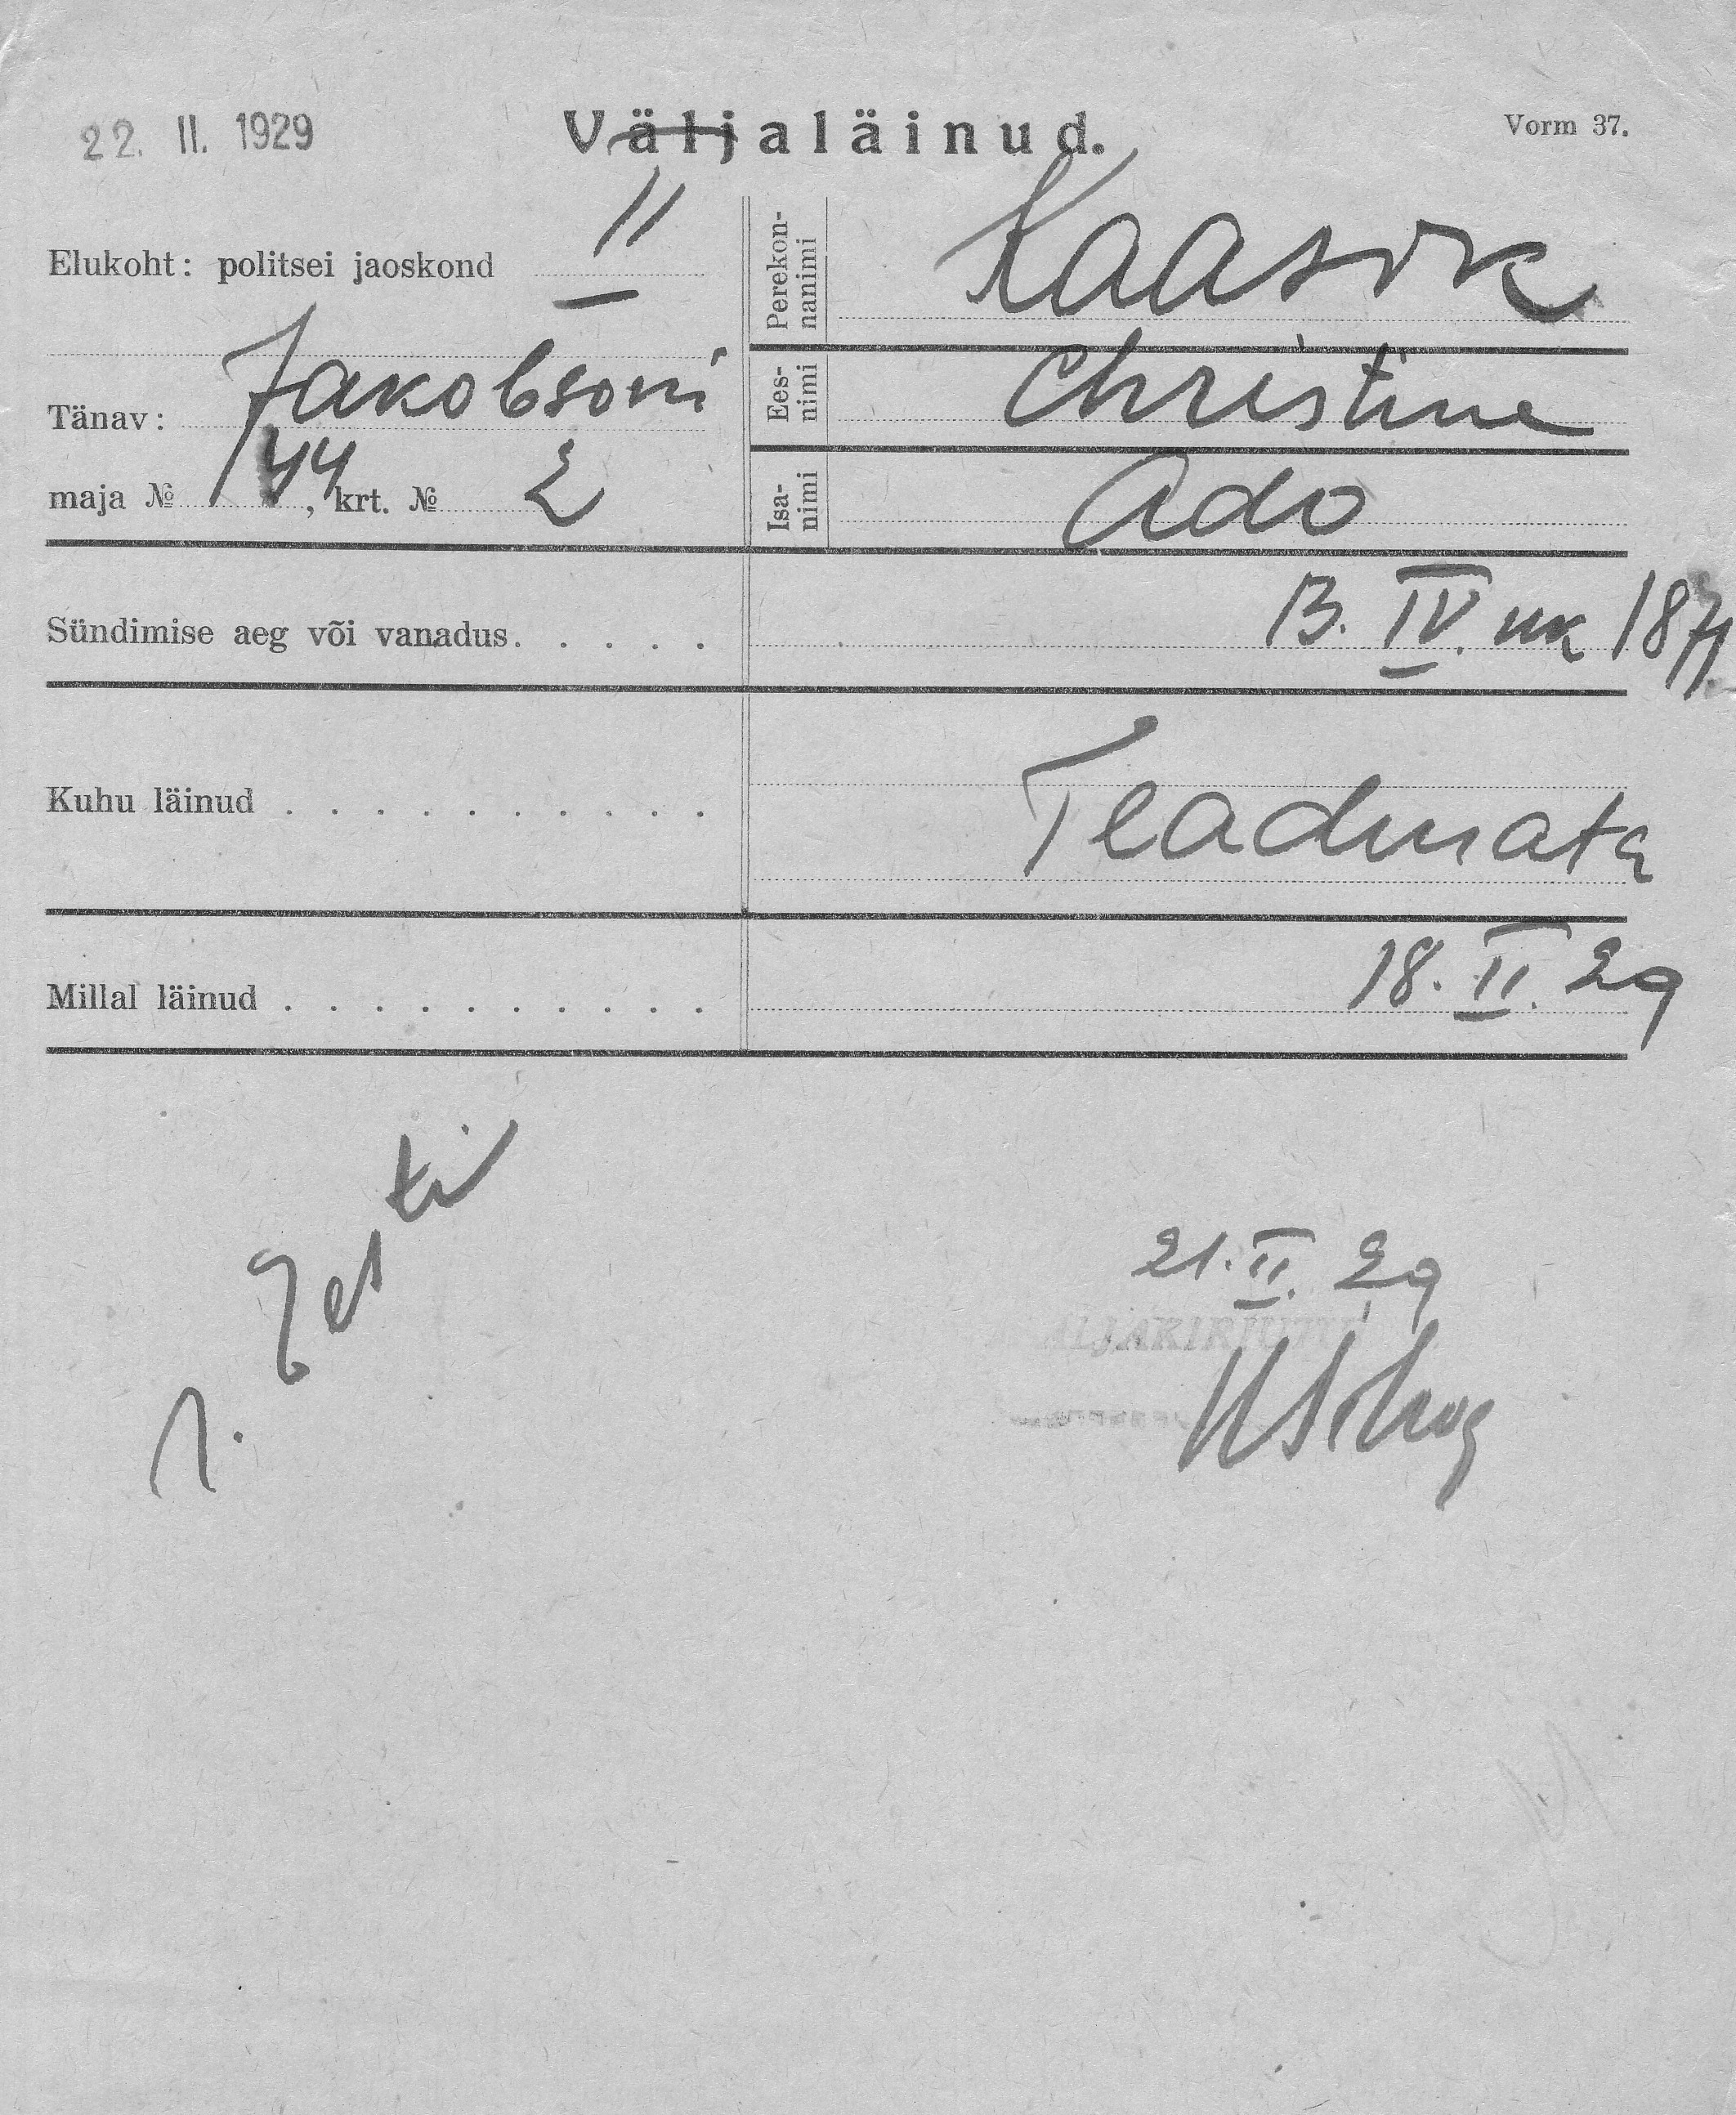 22. II. 1929
Väljaläinud.
Vorm 37.
Elukoht: politsei jaoskond II
Tänav: Jakobsoni
maja № 44, krt. № 2
Perekon-
nanimi
Kaasik
Ees-
nimi
Christine
Isa-
nimi
Ado
Sündimise aeg või vanadus. . . . . 13. IV. uk 1871
Kuhu läinud . . . . . . . . . . Teadmata
Millal läinud . . . . . . . . . . 18. II. 29
21. II. 29